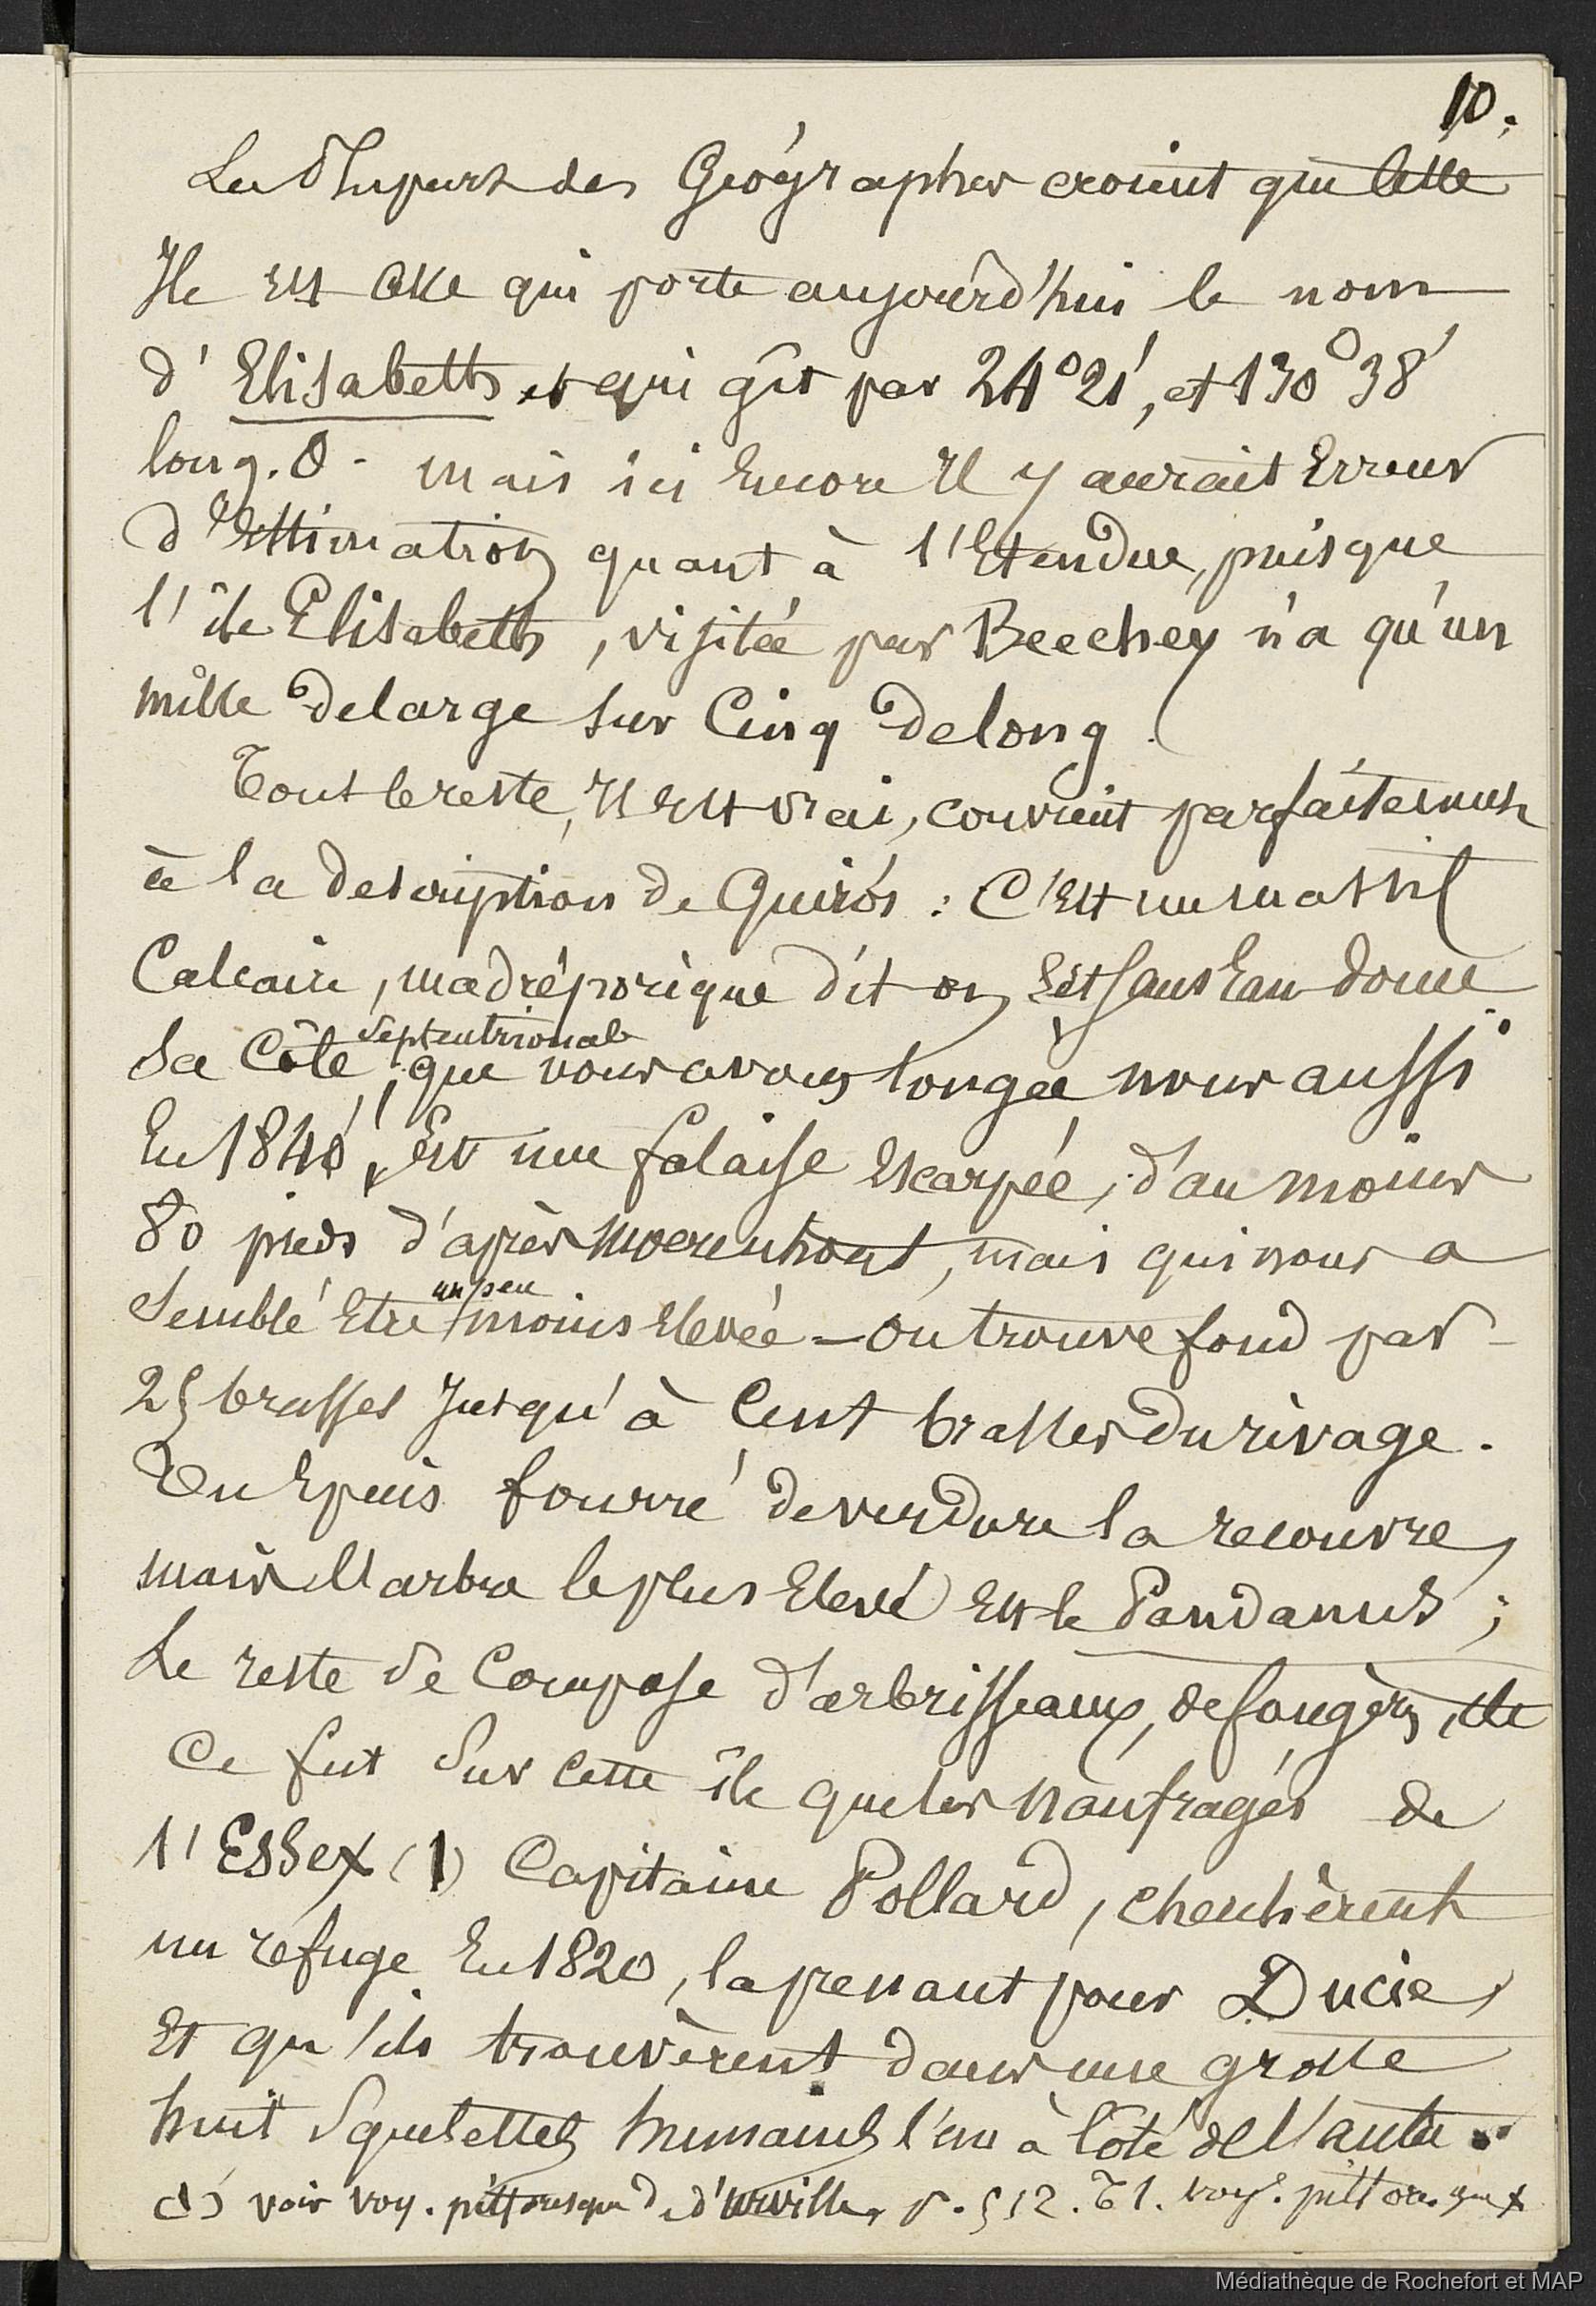 10.
La Plupart des Géographes croient que cette
Ile est celle qui porte aujourd'hui le nom
d'Elisabeth et qui gît par 24°21', et 130°38'
long. O - mais ici Encore Il y aurait Erreur
d'Estimation quant à l'Etendue, puisque
l'île Elisabeth, visitée par Beechey n'a qu'un
mille de large sur Cinq de long.
Tout le reste, Il Est vrai, convient parfaitement
à la description de Quirós : C'Est un massif
Calcaire, madréporique dit on, Est sans Eau douce
Sa Côte septentrionale, que nous avons longée nous aussi
En 1840, Est une falaise Escarpée, d'au moins
80 pieds d'après Moerenhout, mais qui nous a
Semblé Etre un peu moins Elevée - On trouve fond par
25 brasses Jusqu'à Cent brasses du rivage.
Un Epais fourré de verdure la recouvre,
mais l'arbre le plus Elevé Est le Pandanus ;
Le reste se Compose d'arbrisseaux, de fougères, etc
Ce fut Sur Cette île que les Naufragés de
l'Essex (1) Capitaine Pollard, cherchèrent
un refuge En 1820, la prenant pour Ducie,
Et qu'ils trouvèrent dans une grotte
huit Squelettes humains l'un à Côté de l'autre.
(1) voir voy. pittoresque de d'Urville, p. 512. T1. voy. pittoresque
Médiathèque de Rochefort et MAP